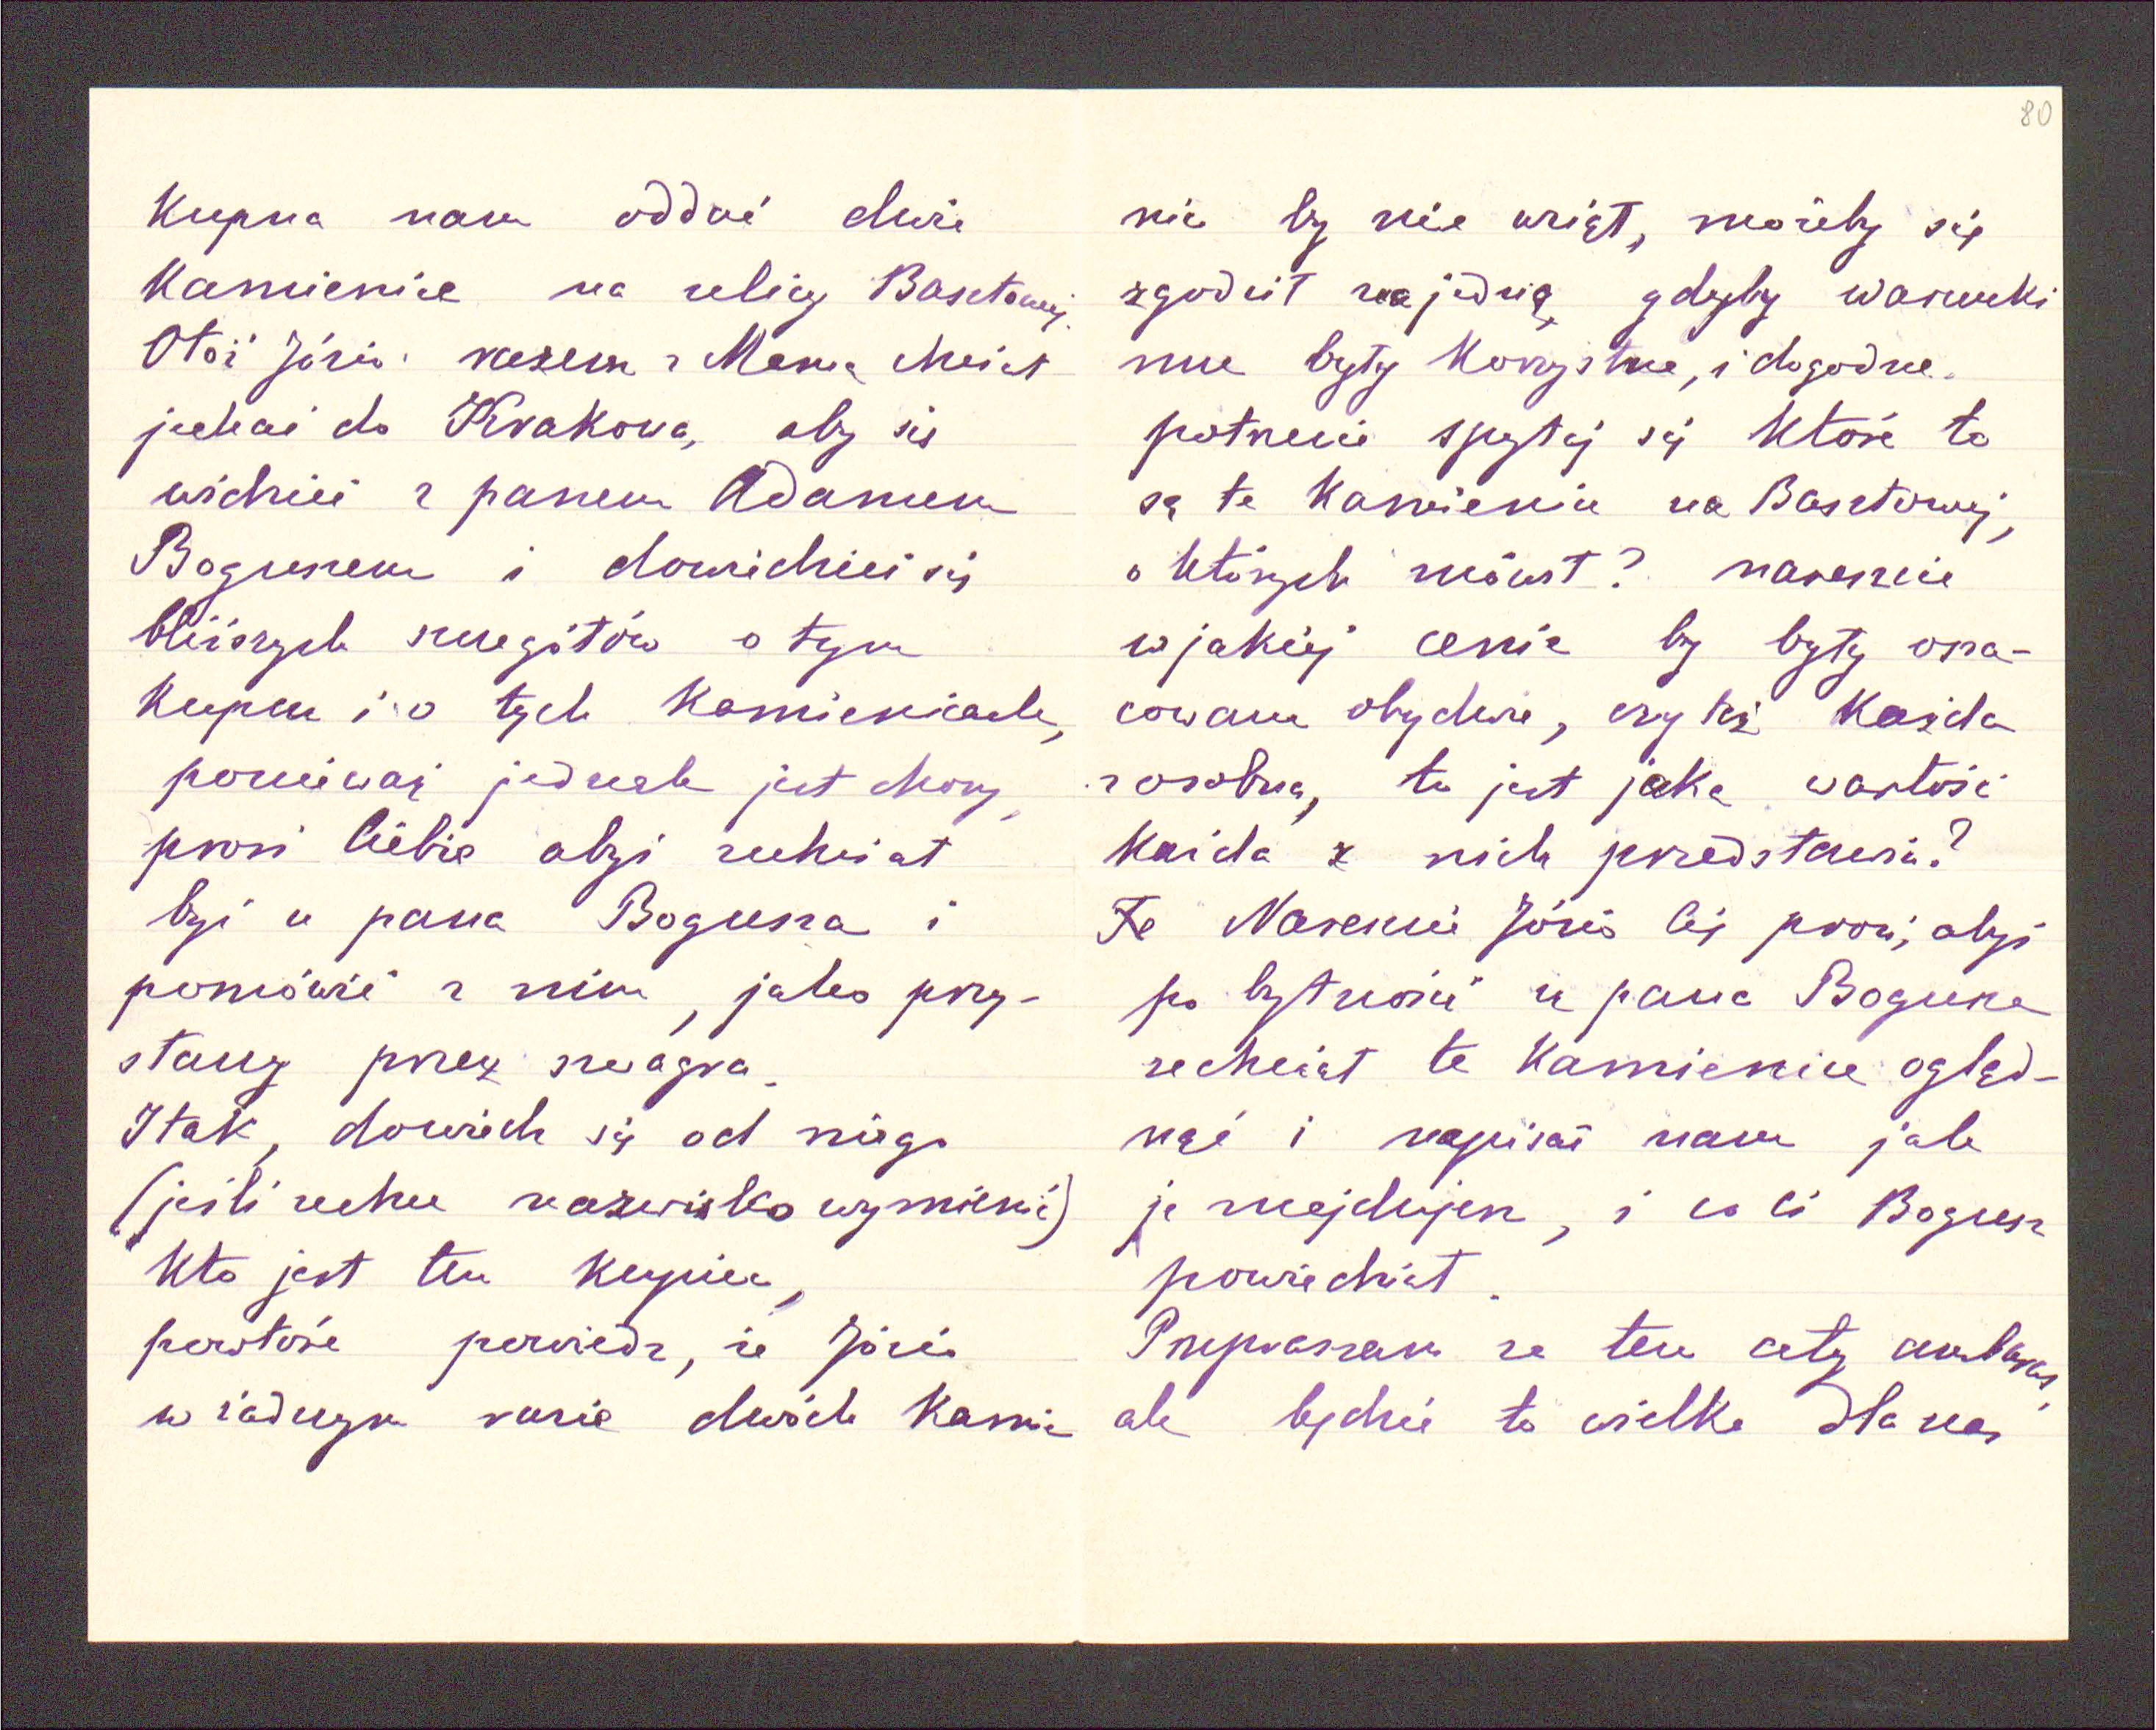 80
kupna nam oddać dwie
kamienice na ulicy Basztowej.
Otóż Józio razem z Mamą chciał
jechać do Krakowa, aby się
widzieć z panem Adamem
Boguszem i dowiedzieć się
bliższych szczegółów o tym
kupcu i o tych kamienicach,
ponieważ jednak jest chory,
prosi Ciebie abyś zechciał
być u pana Bogusza i
pomówić z nim, jako przy-
stany przez szwagra.
I tak, dowiedz się od niego
(jeśli zechce nazwisko wymienić)
kto jest ten kupiec,
powtóre powiedz, że Józio
w żadnym razie dwóch kamie
nic by nie wziął, możeby się
zgodził na jedną gdyby warunki
mu były korzystne, i dogodne.
potrzecie spytaj się któré to
są te kamienice na Basztowej,
o których mówił? nareszcie
w jakiéj cenie by były osza-
cowane obydwie, czy też każda
z osobna, to jest jaką wartość
każda z nich przedstawia?
Nareszcie Józio Cię prosi, abyś
po bytności u pana Bogusza
zechciał te kamienice ogląd-
nąć i napisać nam jak
je znajdujesz, i co Ci Bogusz
powiedział.
Przepraszam za ten cały ambaras,
ale będzie to wielka dla nas